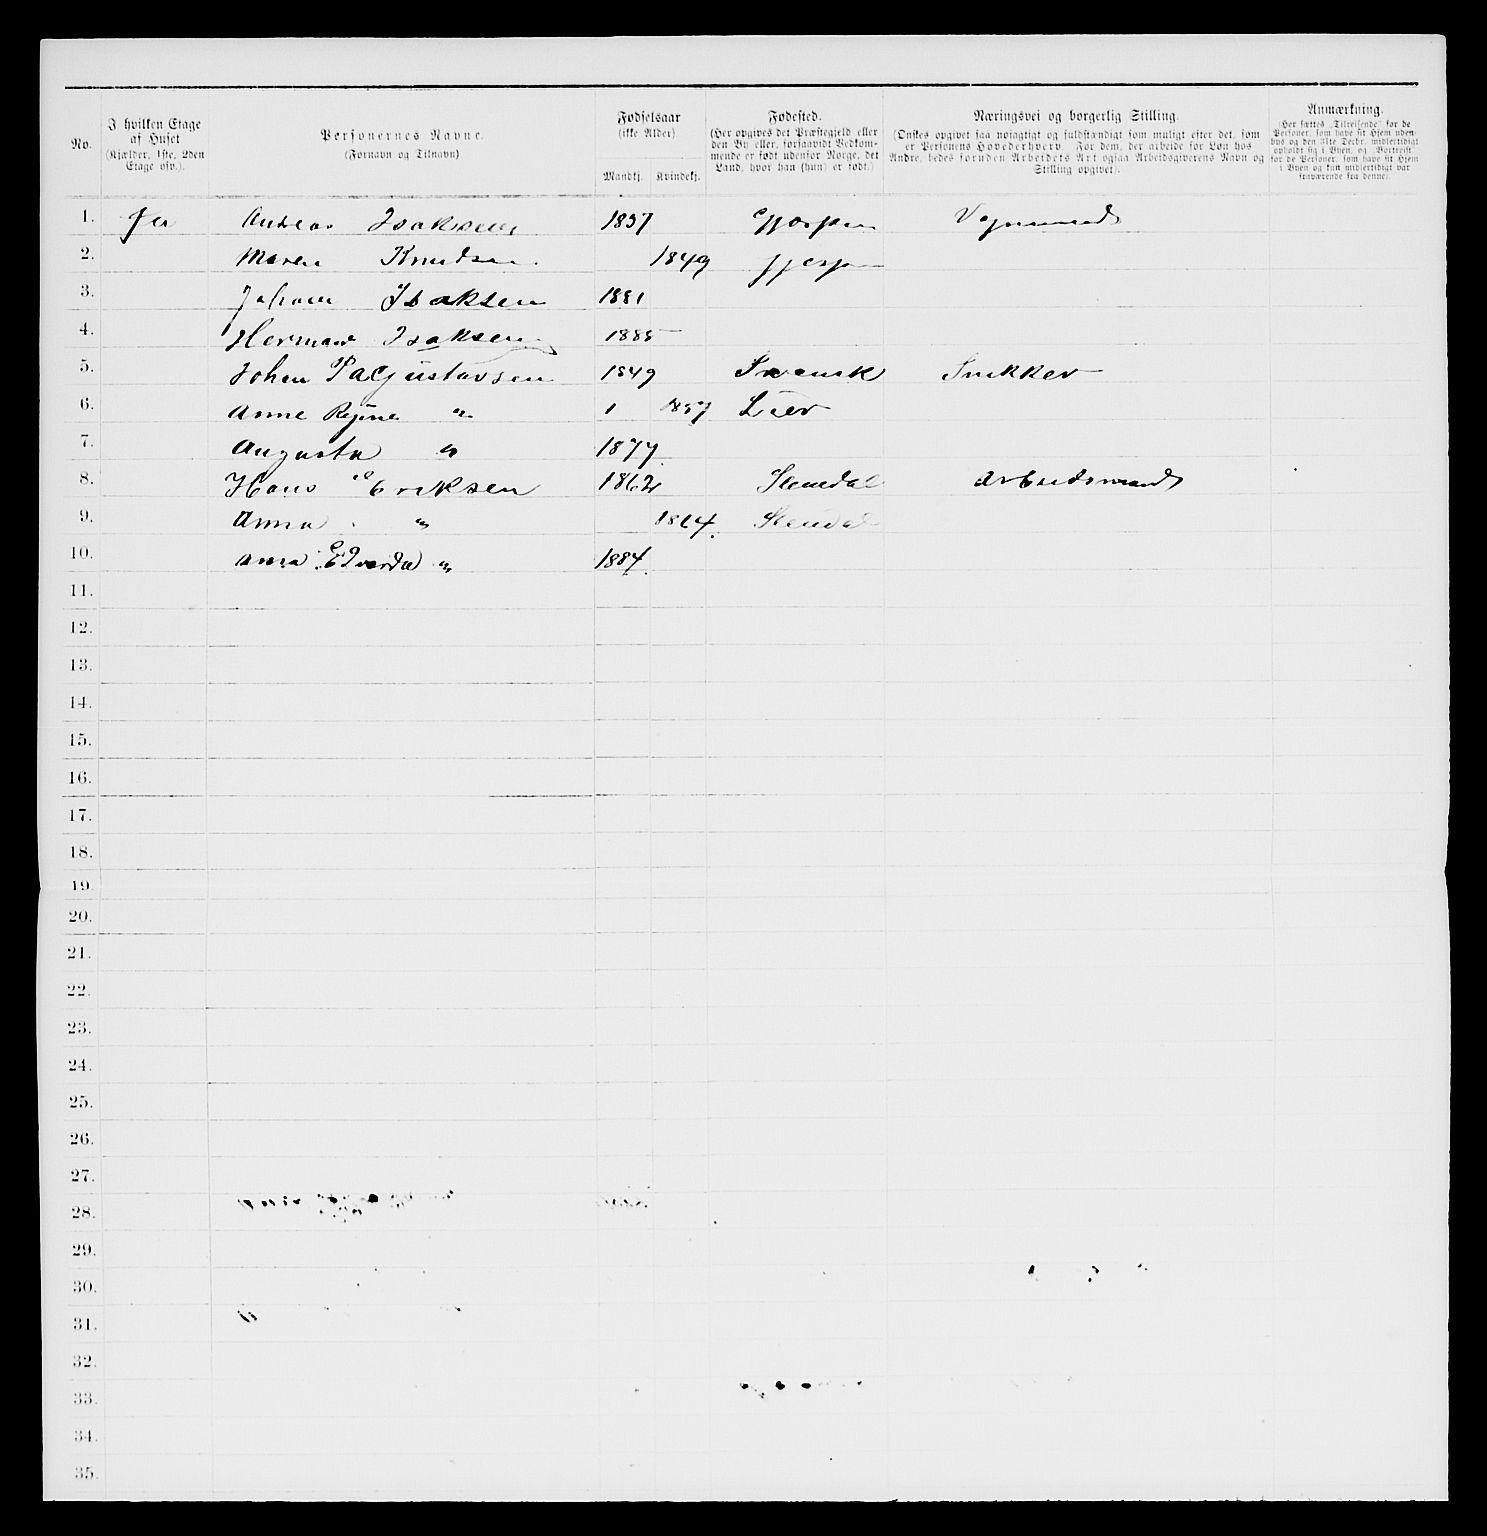 No.
I hvilken Etage af Huset
(Kjælder, 1ste, 2den Etage osv.).
Personernes Navne.
(Fornavn og Tilnavn)
Fødselsaar
(ikke Alder)
Mandkj. Kvindekj.
Fødested.
(Her opgives det Præstegjeld eller
den By eller, forsaavidt Vedkom-
mende er født udenfor Norge, det
Land, hvor han (hun) er født.)
Næringsvei og borgerlig Stilling.
(Ønskes opgivet saa nøiagtigt og fuldstændigt som muligt efter det, som
er Personens Hovederhverv. For dem, der arbeide for Løn hos
Andre, bedes foruden Arbeidets Art ogsaa Arbeidsgiverens Navn og
Stilling opgivet).
Anmærkning.
(Her sættes „Tilreisende" for de
Personer, som have sit Hjem uden-
bys og den 31te Decbr. midlertidigt
opholdt sig i Byen, og „Bortreist"
for de Personer, som have sit Hjem
i Byen og kun midlertidigt var
fraværende fra denne).
1. Andreas Isaksen 1857 Gjerpen
2. Maren Knudsen 1849 Gjerpen
3. Johan Isaksen 1881
4. Herman Isaksen 1885
5. Johan Gustavsen 1849 Svensk Snekker
6. Anne Regine " 1857 Lier
7. Augusta " 1877
8. Hans Eriksen 1862 Slemdal Arbeidsmand
9. Anna " 1864 Slemdal
10. Anna Edvarda " 1884
11.
12.
13.
14.
15.
16.
17.
18.
19.
20.
21.
22.
23.
24.
25.
26.
27.
28.
29.
30.
31.
32.
33.
34.
35.